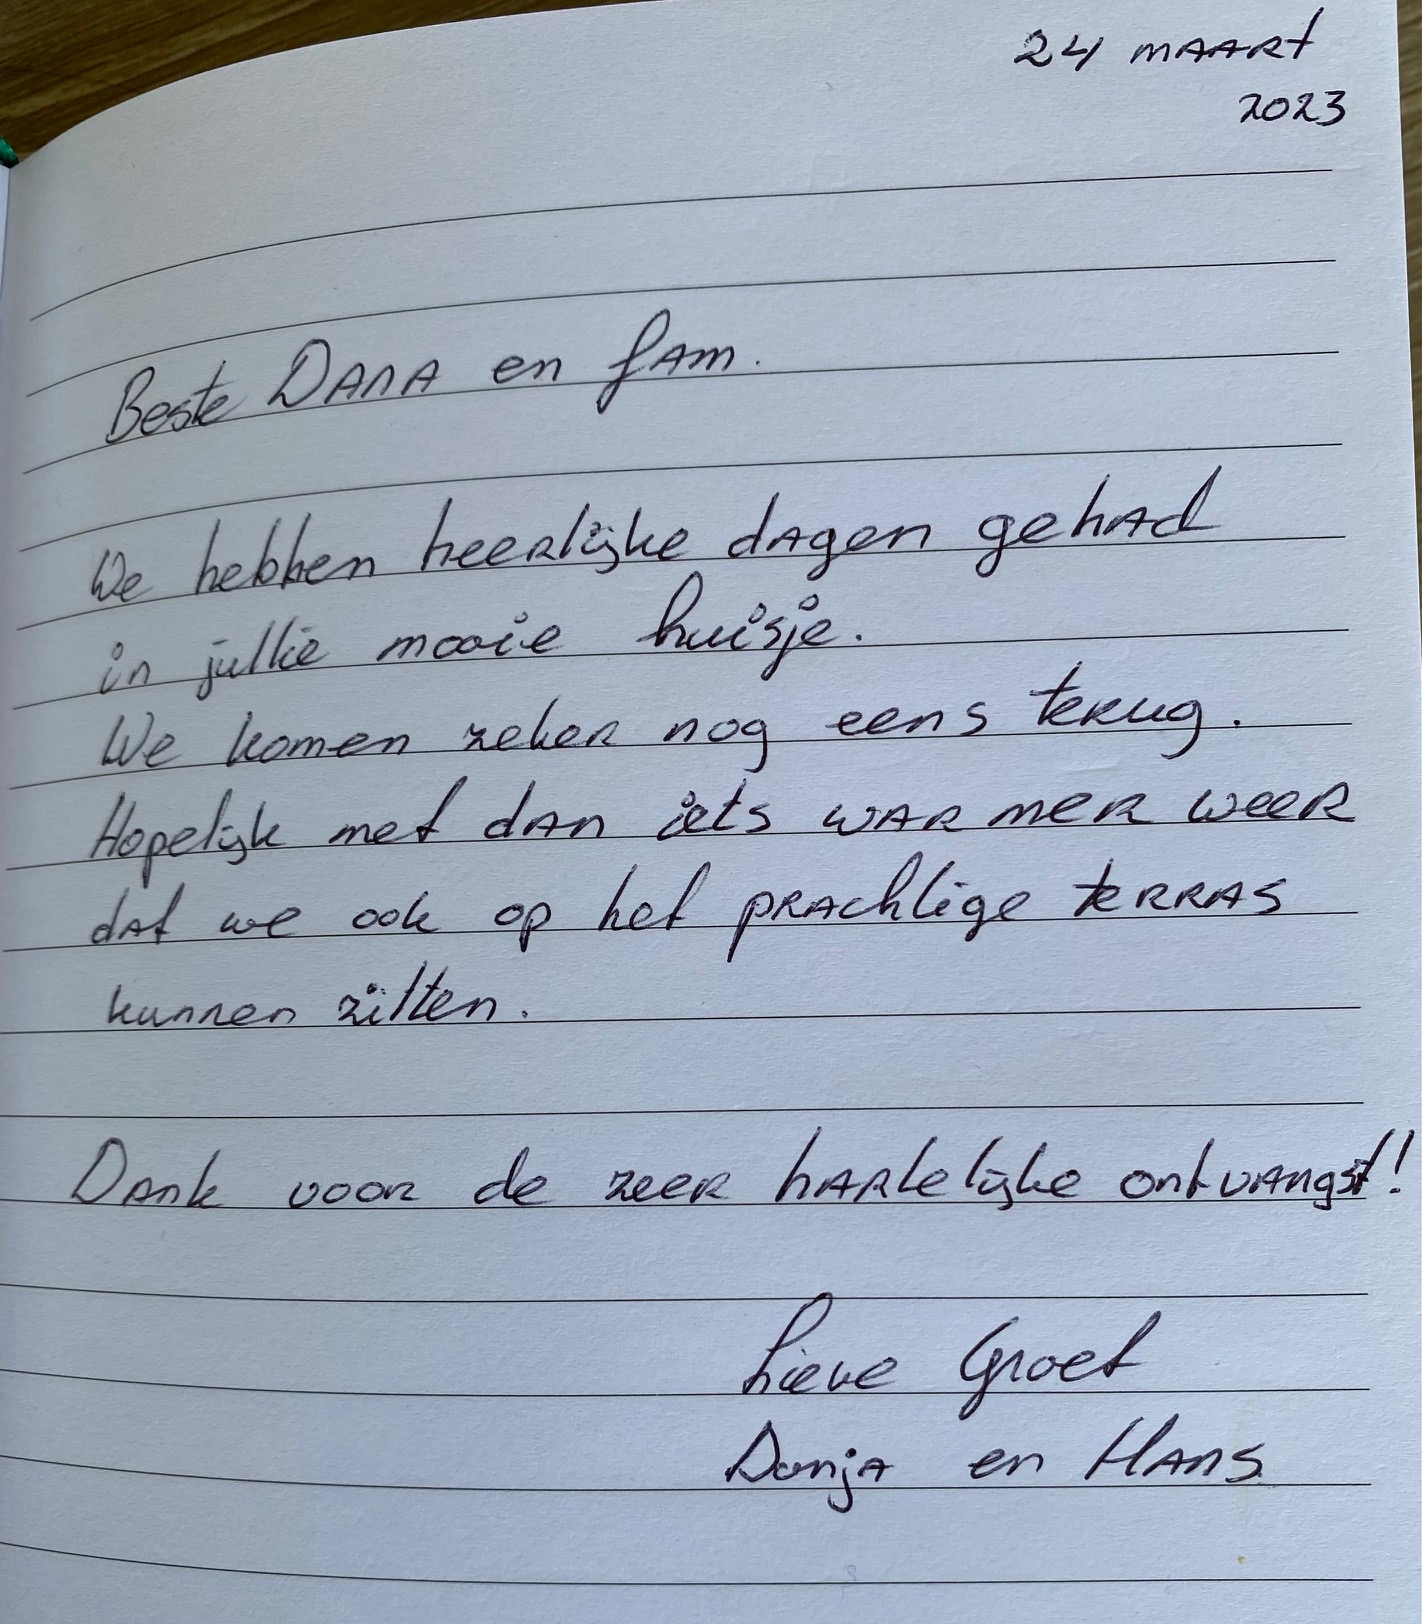 24 maart
2023
Beste Dana en fam.
We hebben heerlijke dagen gehad
in jullie mooie huisje.
We komen zeker nog eens terug.
Hopelijk met dan iets warmer weer
dat we ook op het prachtige terras
kunnen zitten.
Dank voor de zeer hartelijke ontvangst!
Lieve Groet
Donja en Hans